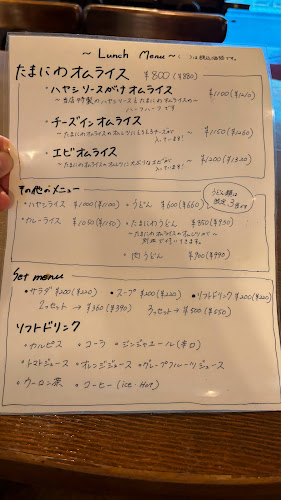 ～ Lunch Menu ～ ( )は税込価格です。
たまにわオムライス ￥800(￥880)
・ハヤシソースがけオムライス ￥1100(￥1210)
～当店特製のハヤシソースとたまにわオムライスの～
ハーフ&ハーフです
・チーズインオムライス ～￥1150(￥1265)
～たまにわオムライスのオムレツにとろとろチーズが
入っています!
・エビオムライス ～￥1200(￥1320)
～たまにわオムライスのオムレツに大ぷりなエビが
入っています!
その他のメニュー
・ハヤシライス ￥1000(￥1100)
・うどん ￥600(￥660)
うどん類は
並盛 3倍です
・カレーライス ￥1050(￥1150)
・たまにわうどん ￥850(￥930)
～たまにわオムライスのオムレツが～
別皿で付いてきます。
・肉うどん ￥900(￥990)
Set menu
・サラダ ￥200(￥220) ・スープ ￥200(￥220) ・ソフトドリンク ￥200(￥220)
2つセット → ￥360(￥390) 3つセット → ￥500(￥550)
ソフトドリンク
・カルピス ・コーラ ・ジンジャエール(辛口)
・トマトジュース ・オレンジジュース ・グレープフルーツジュース
・ウーロン茶 ・コーヒー(ice・Hot)